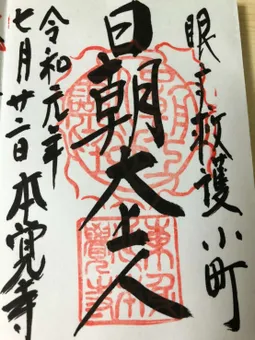 眼守救護 小町
日朝大上人
令和元年
七月廿二日 本覚寺